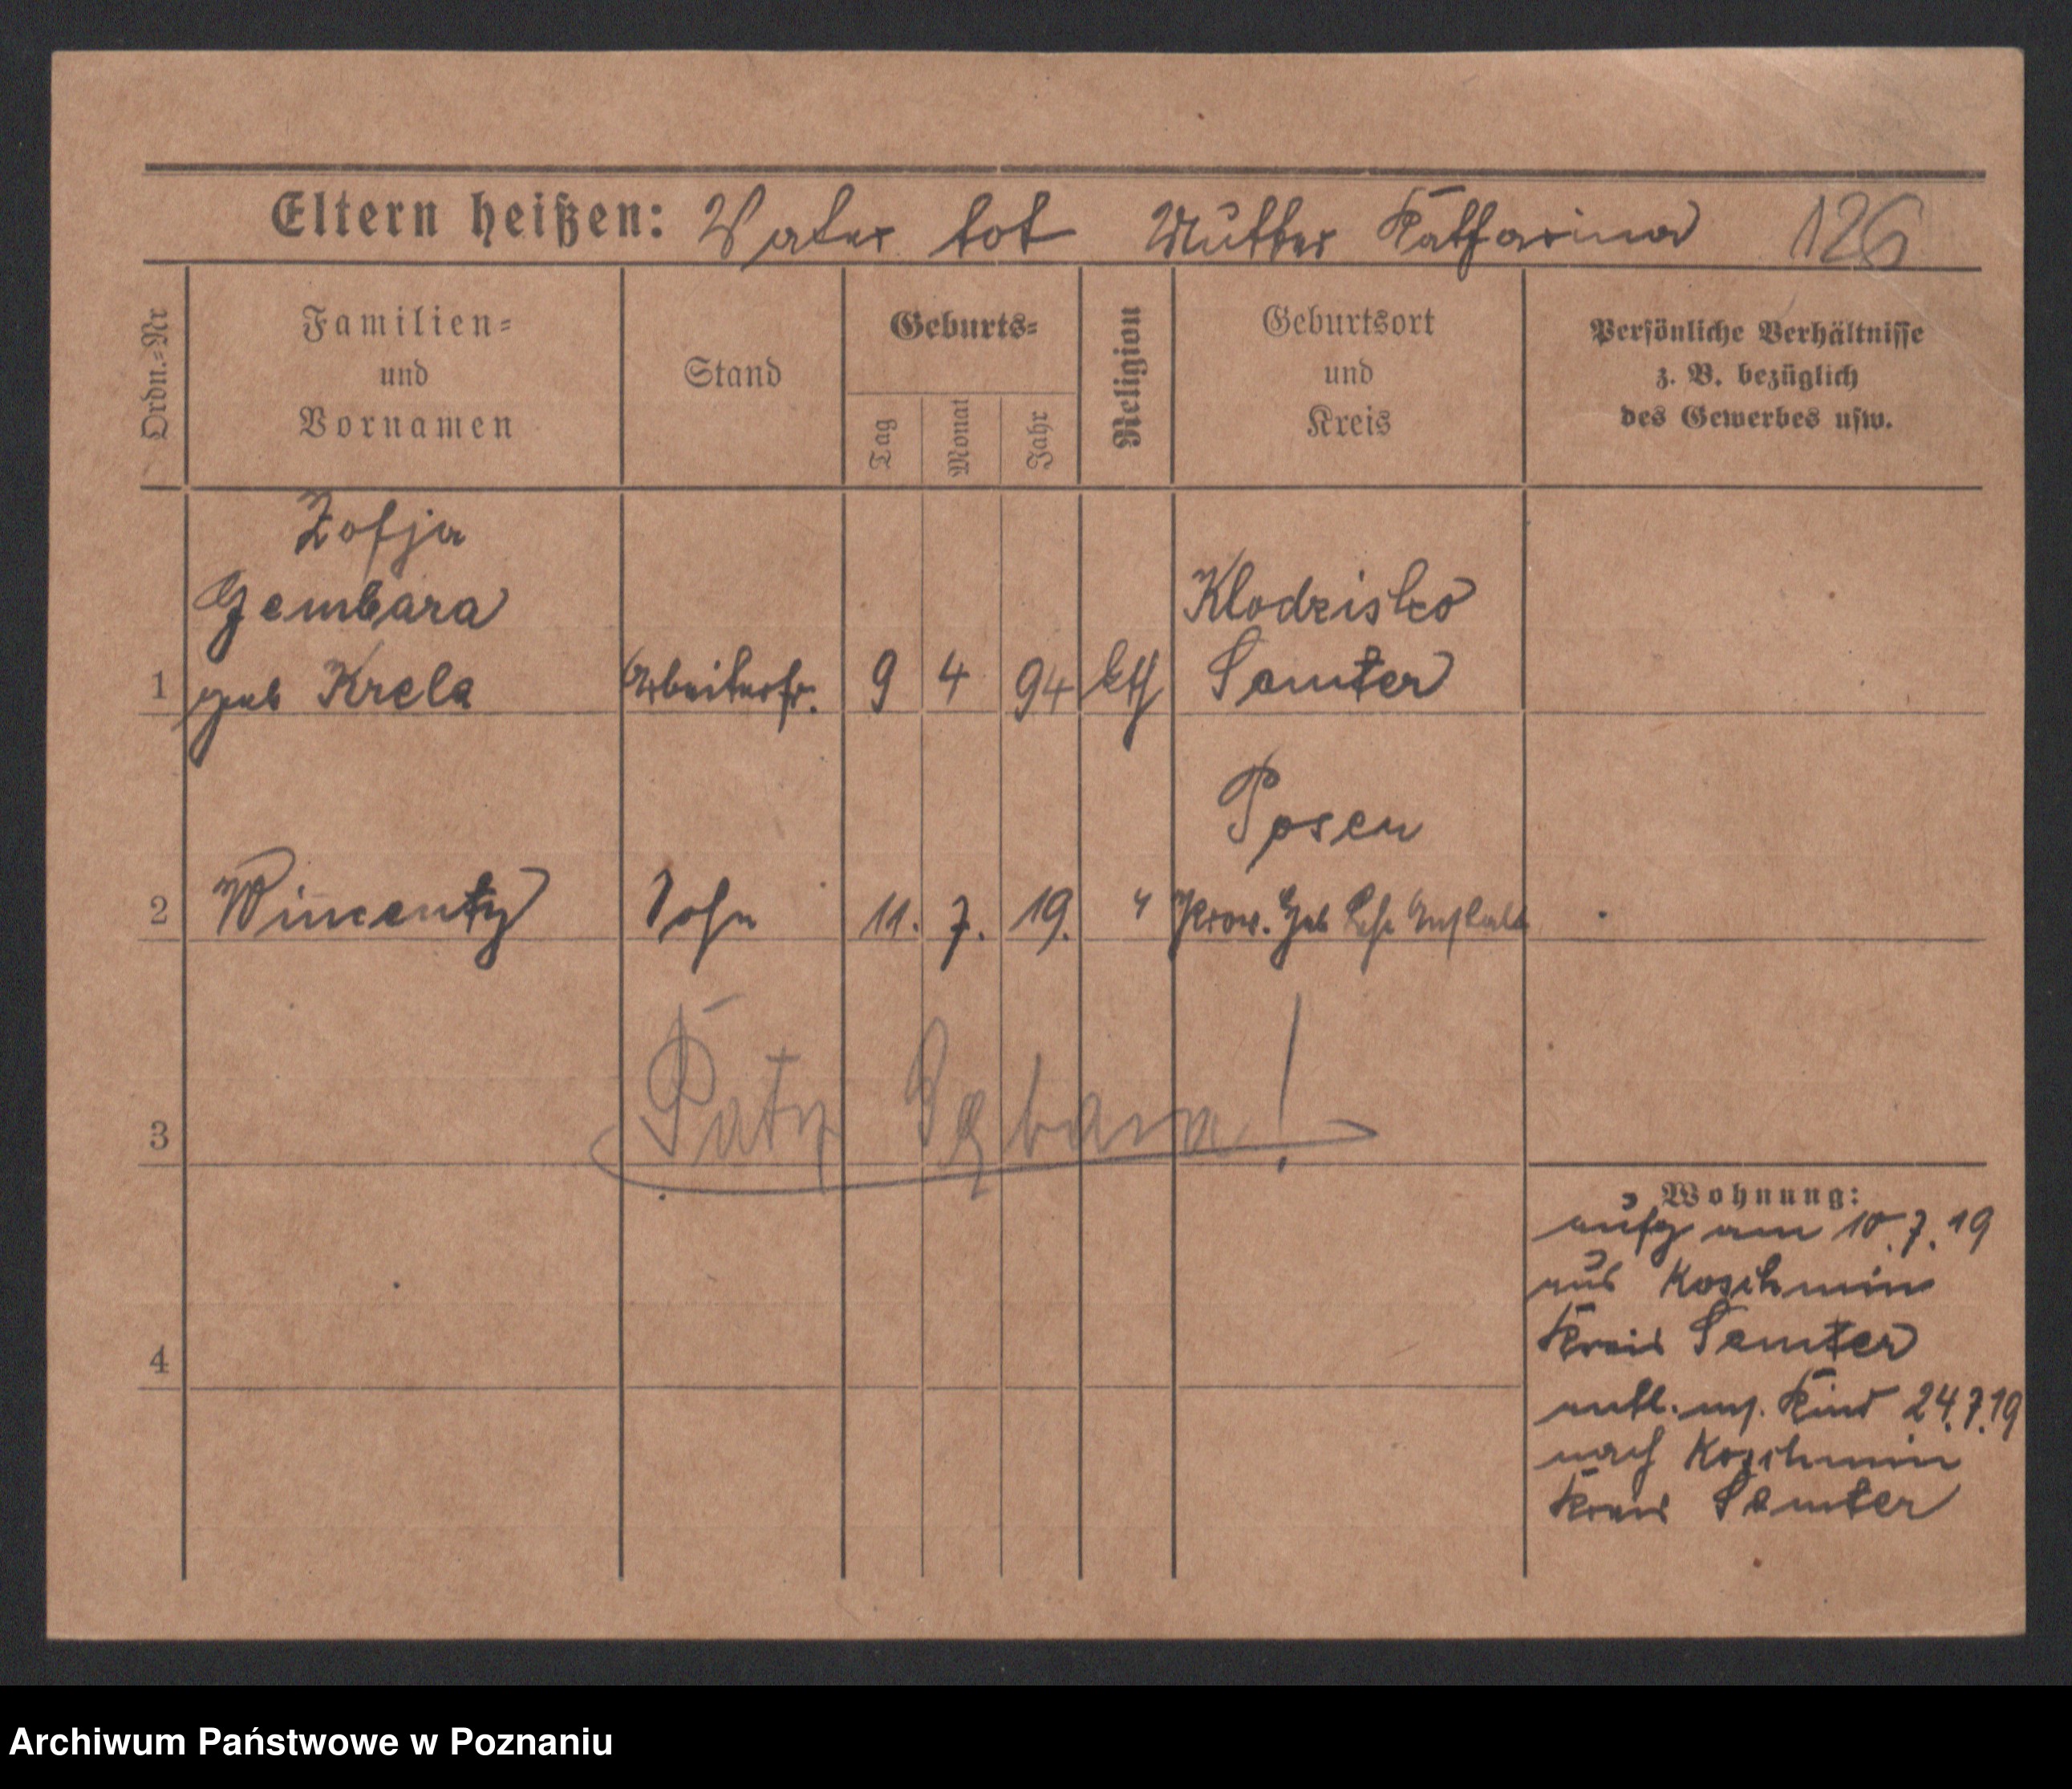 Eltern heißen: Vater tot Mutter Katharina 126
Ordn.=Nr
Familien=
und
Vornamen
Stand
Geburts=
Tag
Monat
Jahr
Religion
Geburtsort
und
Kreis
Persönliche Verhältnisse
z. B. bezüglich
des Gewerbes usw.
Zofja
Gembara
Klodzisko
1 geb Krela Arbeiterfr. 9 4 94 kth Samter
Posen
2 Wincenty Sohn 11. 7. 19. " Prov. Heb Lehr Anstalt
3 Patrz Gębara!
4
Wohnung:
aufg am 10.7.19
aus Koschmin
Kreis Samter
entl. m. Kind 24.7.19
nach Koschmin
Kreis Samter
Archiwum Państwowe w Poznaniu